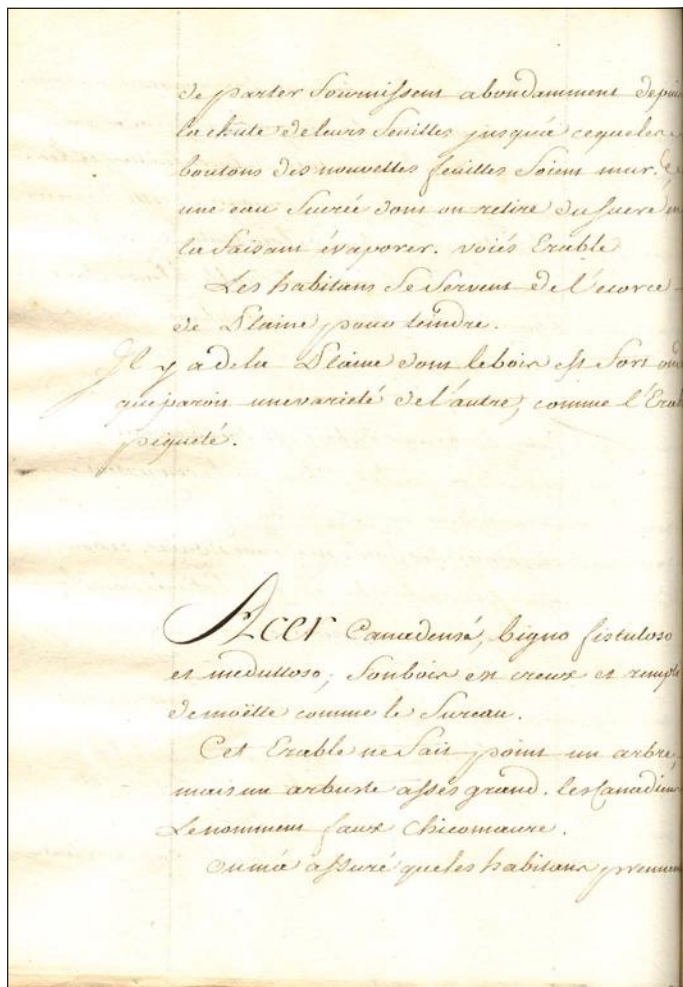 de parler fournissent abondamment depuis
la chute de leurs feuilles jusqu'a ceque les
boutons des nouvelles feuilles soient mur.
une eau sucrée dont on retire du sucre en
la faisant évaporer. voiés Erable
Les habitans se servent de l'ecorce
de Plaine pour teindre.
Il y a de la Plaine dont le bois est fort ond
que paroit une varieté de l'autre, comme l'Erab
piqueté.
Acer Canadensé, ligno fistuloso
et medulloso; son bois est creux et rempli
de moëlle comme le sureau.
Cet Erable ne fait point un arbre,
mais un arbuste assés grand. les Canadiens
Le nomment faux Chicomaure.
on m'a assuré que les habitans prennent